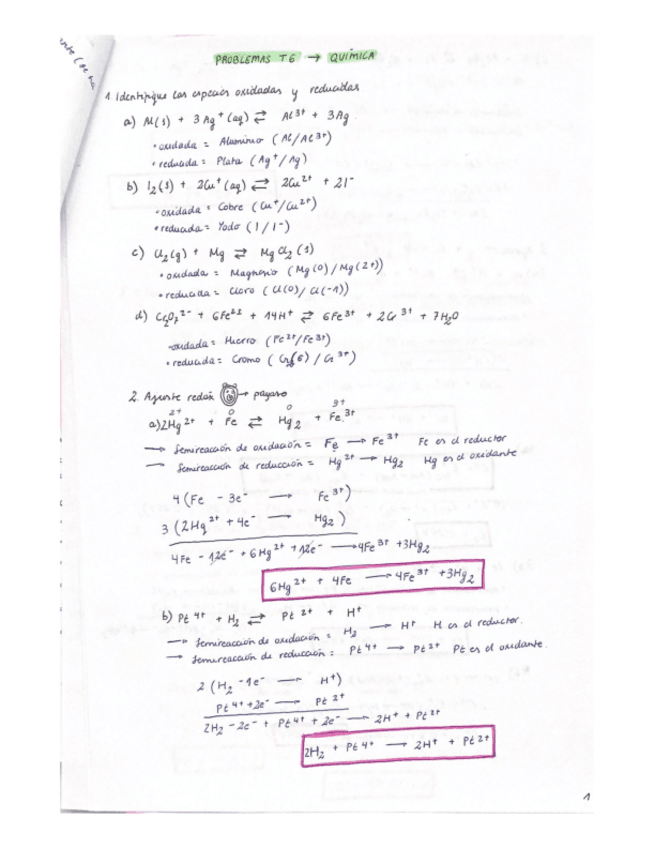 PROBLEMAS T6 → QUÍMICA
1. Identifique las especies oxidadas y reducidas
a) Al(s) + 3Ag⁺(aq) ⇄ Al³⁺ + 3Ag.
• oxidada = Aluminio (Al/Al³⁺)
• reducida = Plata (Ag⁺/Ag)
b) I₂(s) + 2Cu⁺(aq) ⇄ 2Cu²⁺ + 2I⁻
• oxidada = Cobre (Cu⁺/Cu²⁺)
• reducida = Yodo (I/I⁻)
c) Cl₂(g) + Mg ⇄ MgCl₂(s)
• oxidada = Magnesio (Mg(0)/Mg(2+))
• reducida = Cloro (Cl(0)/Cl(-1))
d) Cr₂O₇²⁻ + 6Fe²⁺ + 14H⁺ ⇄ 6Fe³⁺ + 2Cr³⁺ + 7H₂O
• oxidada = Hierro (Fe²⁺/Fe³⁺)
• reducida = Cromo (Cr(6)/Cr³⁺)
2. Ajuste redox → payaso
2+ 0 0 3+
a) 2Hg²⁺ + Fe ⇄ Hg₂ + Fe³⁺
→ Semireacción de oxidación = Fe → Fe³⁺ Fe es el reductor
→ Semireacción de reducción = Hg²⁺ → Hg₂ Hg es el oxidante
4(Fe - 3e⁻ → Fe³⁺)
3(2Hg²⁺ + 4e⁻ → Hg₂)
4Fe - 12e⁻ + 6Hg²⁺ + 12e⁻ → 4Fe³⁺ + 3Hg₂
6Hg²⁺ + 4Fe → 4Fe³⁺ + 3Hg₂
b) Pt⁴⁺ + H₂ ⇄ Pt²⁺ + H⁺
→ Semireacción de oxidación = H₂ → H⁺ H es el reductor.
→ Semireacción de reducción = Pt⁴⁺ → Pt²⁺ Pt es el oxidante.
2(H₂ - 1e⁻ → H⁺)
Pt⁴⁺ + 2e⁻ → Pt²⁺
2H₂ - 2e⁻ + Pt⁴⁺ + 2e⁻ → 2H⁺ + Pt²⁺
2H₂ + Pt⁴⁺ → 2H⁺ + Pt²⁺
1